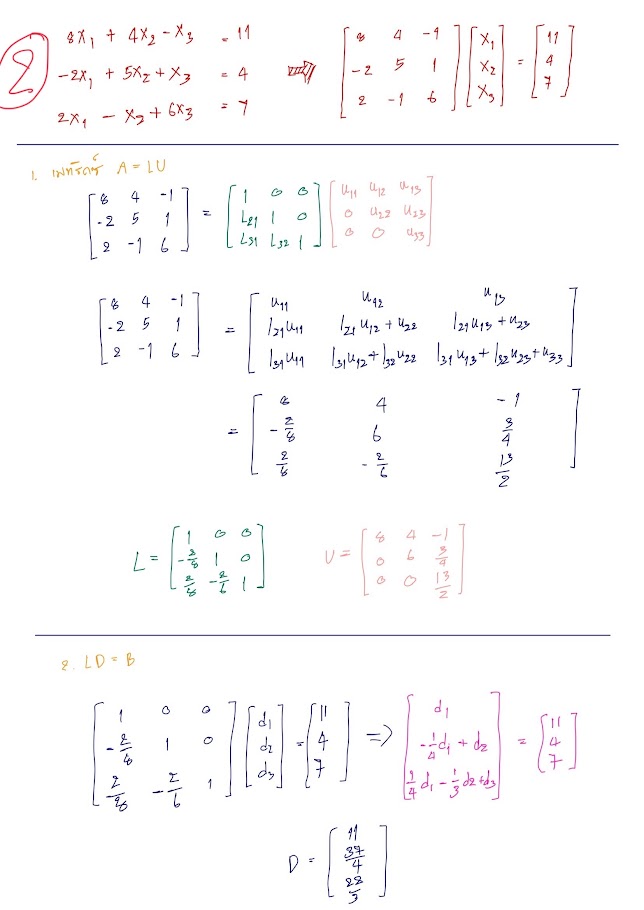 2
8x₁ + 4x₂ - x₃ = 11
-2x₁ + 5x₂ + x₃ = 4
2x₁ - x₂ + 6x₃ = 7
⇒ [8 4 -1; -2 5 1; 2 -1 6] [x₁; x₂; x₃] = [11; 4; 7]
1. เมทริกซ์ A = LU
[8 4 -1; -2 5 1; 2 -1 6] = [1 0 0; L₂₁ 1 0; L₃₁ L₃₂ 1] [u₁₁ u₁₂ u₁₃; 0 u₂₂ u₂₃; 0 0 u₃₃]
[8 4 -1; -2 5 1; 2 -1 6] = [u₁₁ u₁₂ u₁₃; l₂₁u₁₁ l₂₁u₁₂ + u₂₂ l₂₁u₁₃ + u₂₃; l₃₁u₁₁ l₃₁u₁₂ + l₃₂u₂₂ l₃₁u₁₃ + l₃₂u₂₃ + u₃₃]
= [8 4 -1; -2/8 6 3/4; 2/8 -2/6 13/2]
L = [1 0 0; -2/8 1 0; 2/8 -2/6 1] U = [8 4 -1; 0 6 3/4; 0 0 13/2]
2. LD = B
[1 0 0; -2/8 1 0; 2/8 -2/6 1] [d₁; d₂; d₃] = [11; 4; 7] ⇒ [d₁; -1/4d₁ + d₂; 1/4d₁ - 1/3d₂ + d₃] = [11; 4; 7]
D = [11; 27/4; 22/3]